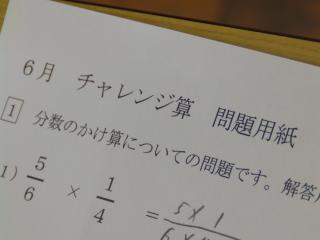 6月 チャレンジ算 問題用紙
1 分数のかけ算についての問題です。解答
1) 5/6 × 1/4 = 5×1/6×